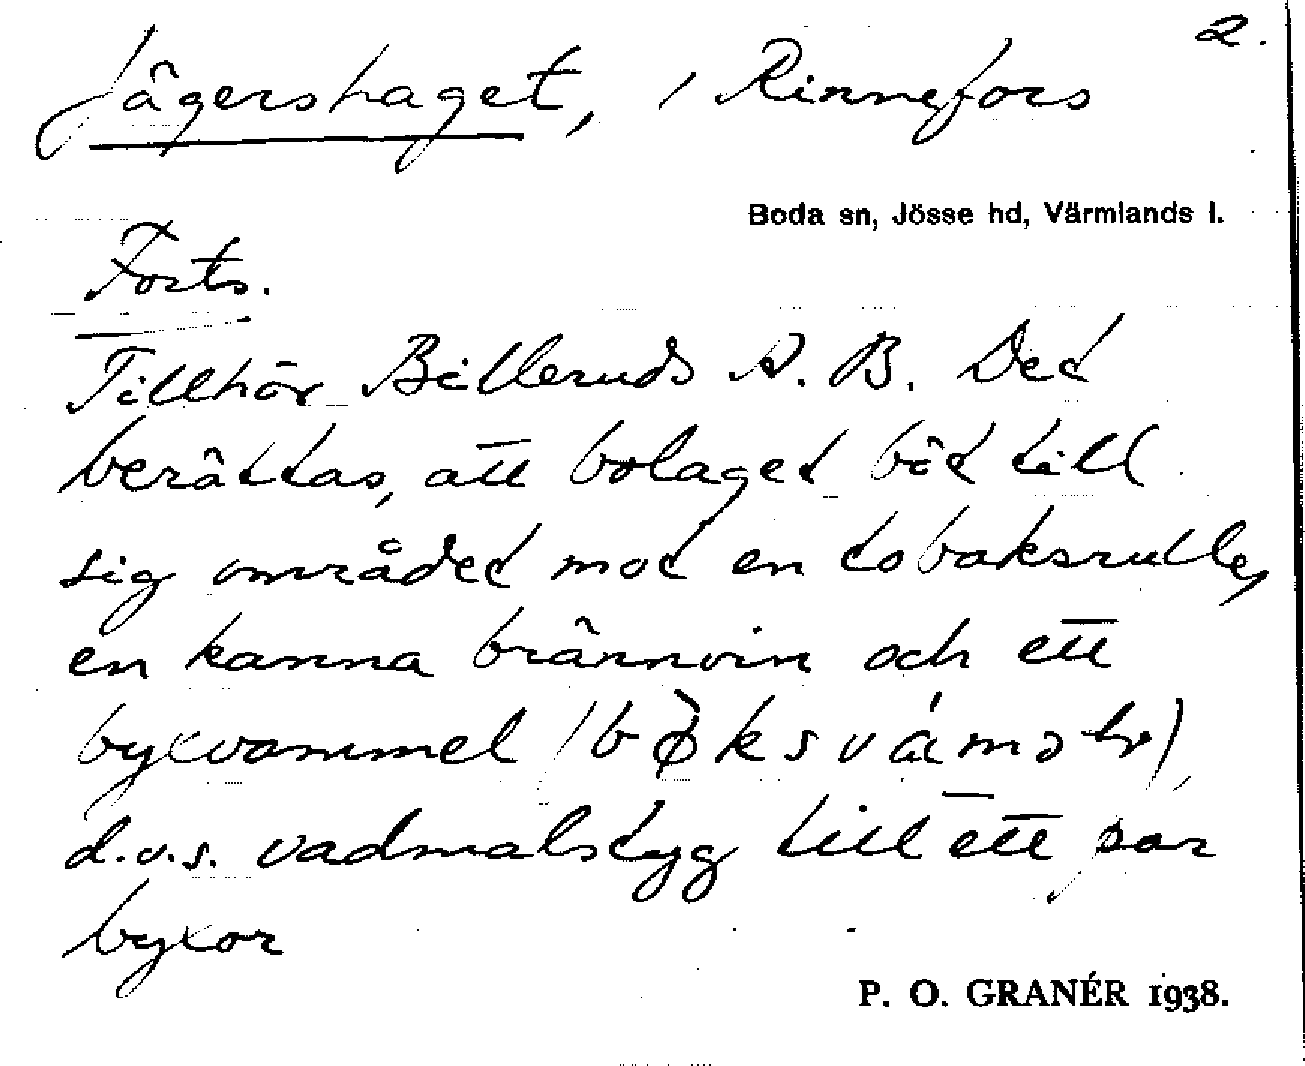 2.
Jägershaget, i Rinnefors
Boda sn, Jösse hd, Värmlands l.
Forts.
Tillhör Billeruds A. B. Det
berättas, att bolaget böt till
sig området mot en tobaksrulle,
en kanna brännvin och ett
byxvammel (bøksvám
d.v.s. vadmalstyg till ett par
byxor
P. O. GRANÉR 1938.